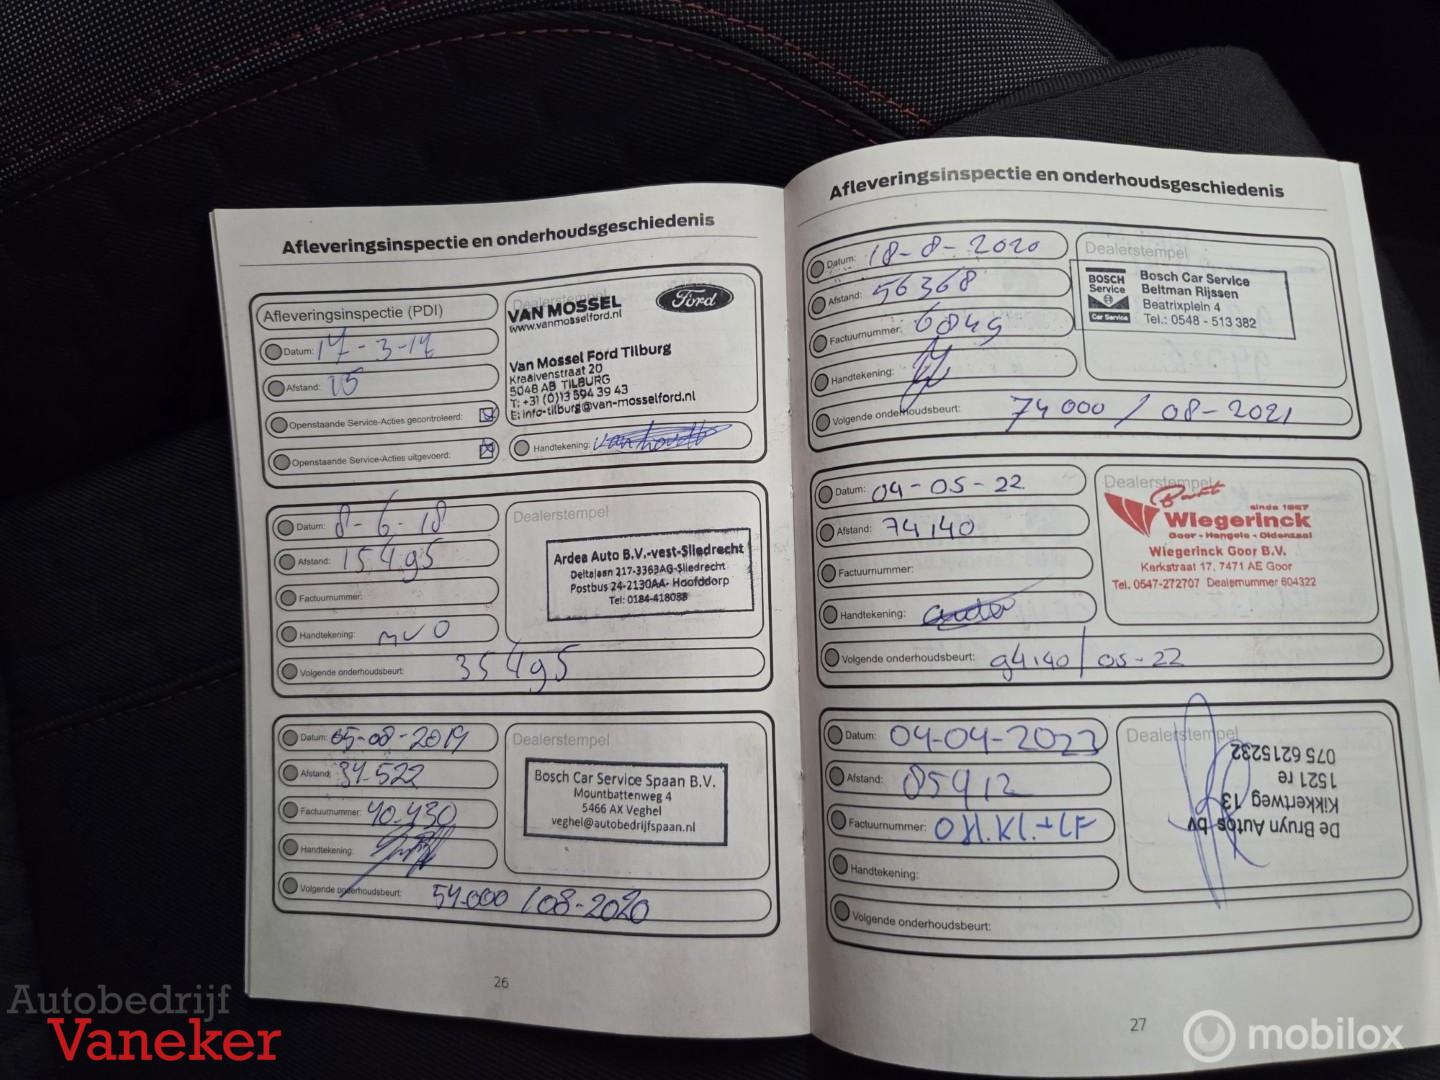 Afleveringsinspectie en onderhoudsgeschiedenis
Afleveringsinspectie (PDI)
Datum: 17-3-17
Afstand: 15
Openstaande Service-Acties gecontroleerd:
Openstaande Service-Acties uitgevoerd:
Dealerstempel
VAN MOSSEL
Ford
www.vanmosselford.nl
Van Mossel Ford Tilburg
Kraaivenstraat 20
5048 AB TILBURG
T: +31 (0)13 594 39 43
E: info-tilburg@van-mosselford.nl
Handtekening:
Datum: 8-6-18
Afstand: 15495
Factuurnummer:
Handtekening: MVO
Volgende onderhoudsbeurt: 35495
Dealerstempel
Ardea Auto B.V.-vest-Sliedrecht
Deltalaan 217-3363AG-Sliedrecht
Postbus 24-2130AA- Hoofddorp
Tel: 0184-418088
Datum: 05-08-2019
Afstand: 34.522
Factuurnummer: 40.430
Handtekening:
Volgende onderhoudsbeurt: 54.000 / 08-2020
Dealerstempel
Bosch Car Service Spaan B.V.
Mountbattenweg 4
5466 AX Veghel
veghel@autobedrijfspaan.nl
26
Afleveringsinspectie en onderhoudsgeschiedenis
Datum: 18-8-2020
Afstand: 56368
Factuurnummer: 6849
Handtekening:
Volgende onderhoudsbeurt: 74000 / 08-2021
Dealerstempel
BOSCH
Service
Car Service
Bosch Car Service
Beltman Rijssen
Beatrixplein 4
Tel.: 0548 - 513 382
Datum: 04-05-22
Afstand: 74140
Factuurnummer:
Handtekening:
Volgende onderhoudsbeurt: 94140 / 05-22
Dealerstempel
Bart
sinds 1967
Wiegerinck
Goor - Hengelo - Oldenzaal
Wiegerinck Goor B.V.
Kerkstraat 17, 7471 AE Goor
Tel. 0547-272707 Dealernummer 604322
Datum: 04-04-2023
Afstand: 85912
Factuurnummer: OH.Kl.+LF
Handtekening:
Volgende onderhoudsbeurt:
Dealerstempel
De Bruyn Autos bv
Kikkertweg 13
1521 re
075 6215232
27
Autobedrijf
Vaneker
mobilox